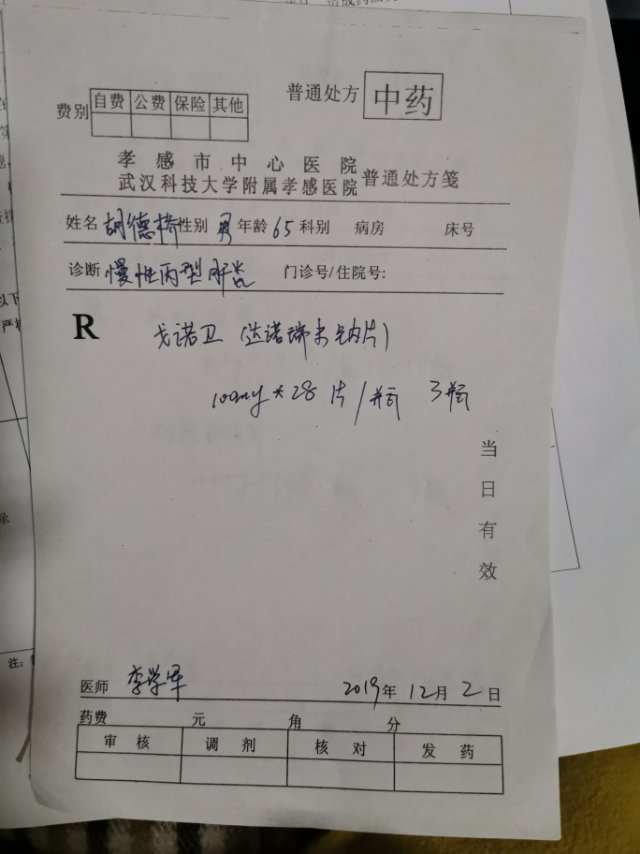 普通处方 中药
费别 自费 公费 保险 其他
孝感市中心医院
武汉科技大学附属孝感医院 普通处方笺
姓名 胡德桥 性别 男 年龄 65 科别 病房 床号
诊断 慢性丙型肝炎 门诊号/住院号:
R 戈诺卫 (达诺瑞韦钠片)
100mg * 28 片/瓶 3瓶
当日有效
医师 李学军 2019年 12月 2日
药费 元 角 分
审核 调剂 核对 发药
注: